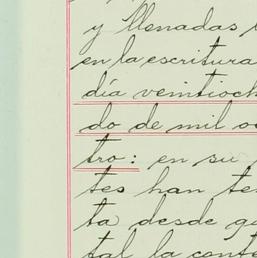 y llenadas
en la escritura
día veintioch
do de mil oc
tro: en su
tes han te
ta desde qu
tal la conte